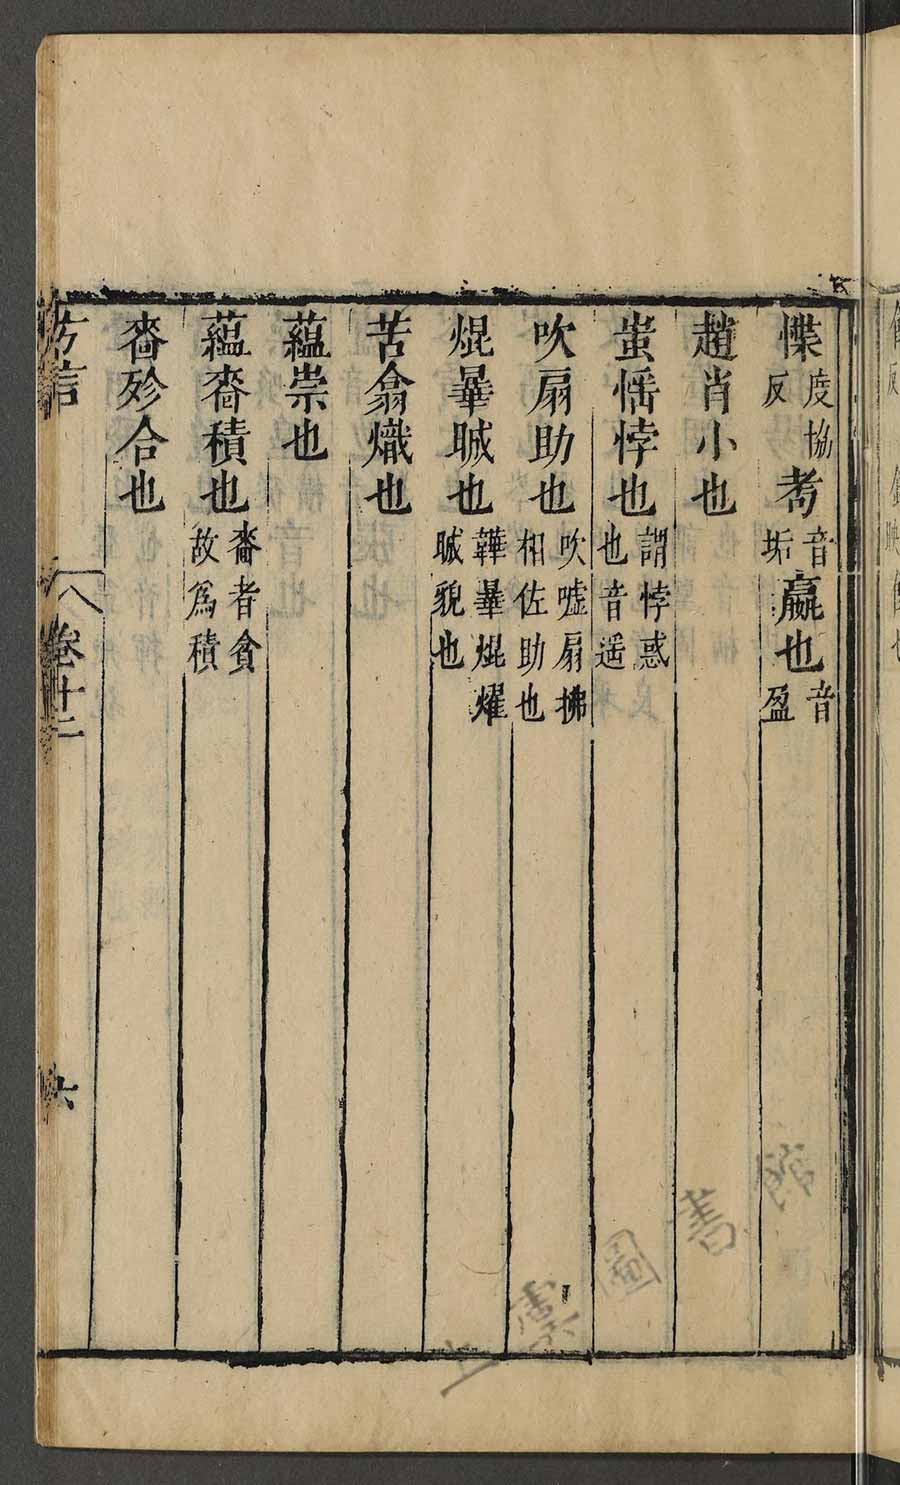 惵度協反耇音垢嬴也音盈
趙肖小也
蚩愮悖也謂悖惑也音遥
吹扇助也吹噓扇拂相佐助也
焜㬙晠也韡㬙焜燿晠貌也
苦翕熾也
蘊崇也
蘊嗇積也嗇者貪故爲積
嗇殄合也
方言
卷十二
六
圖書館